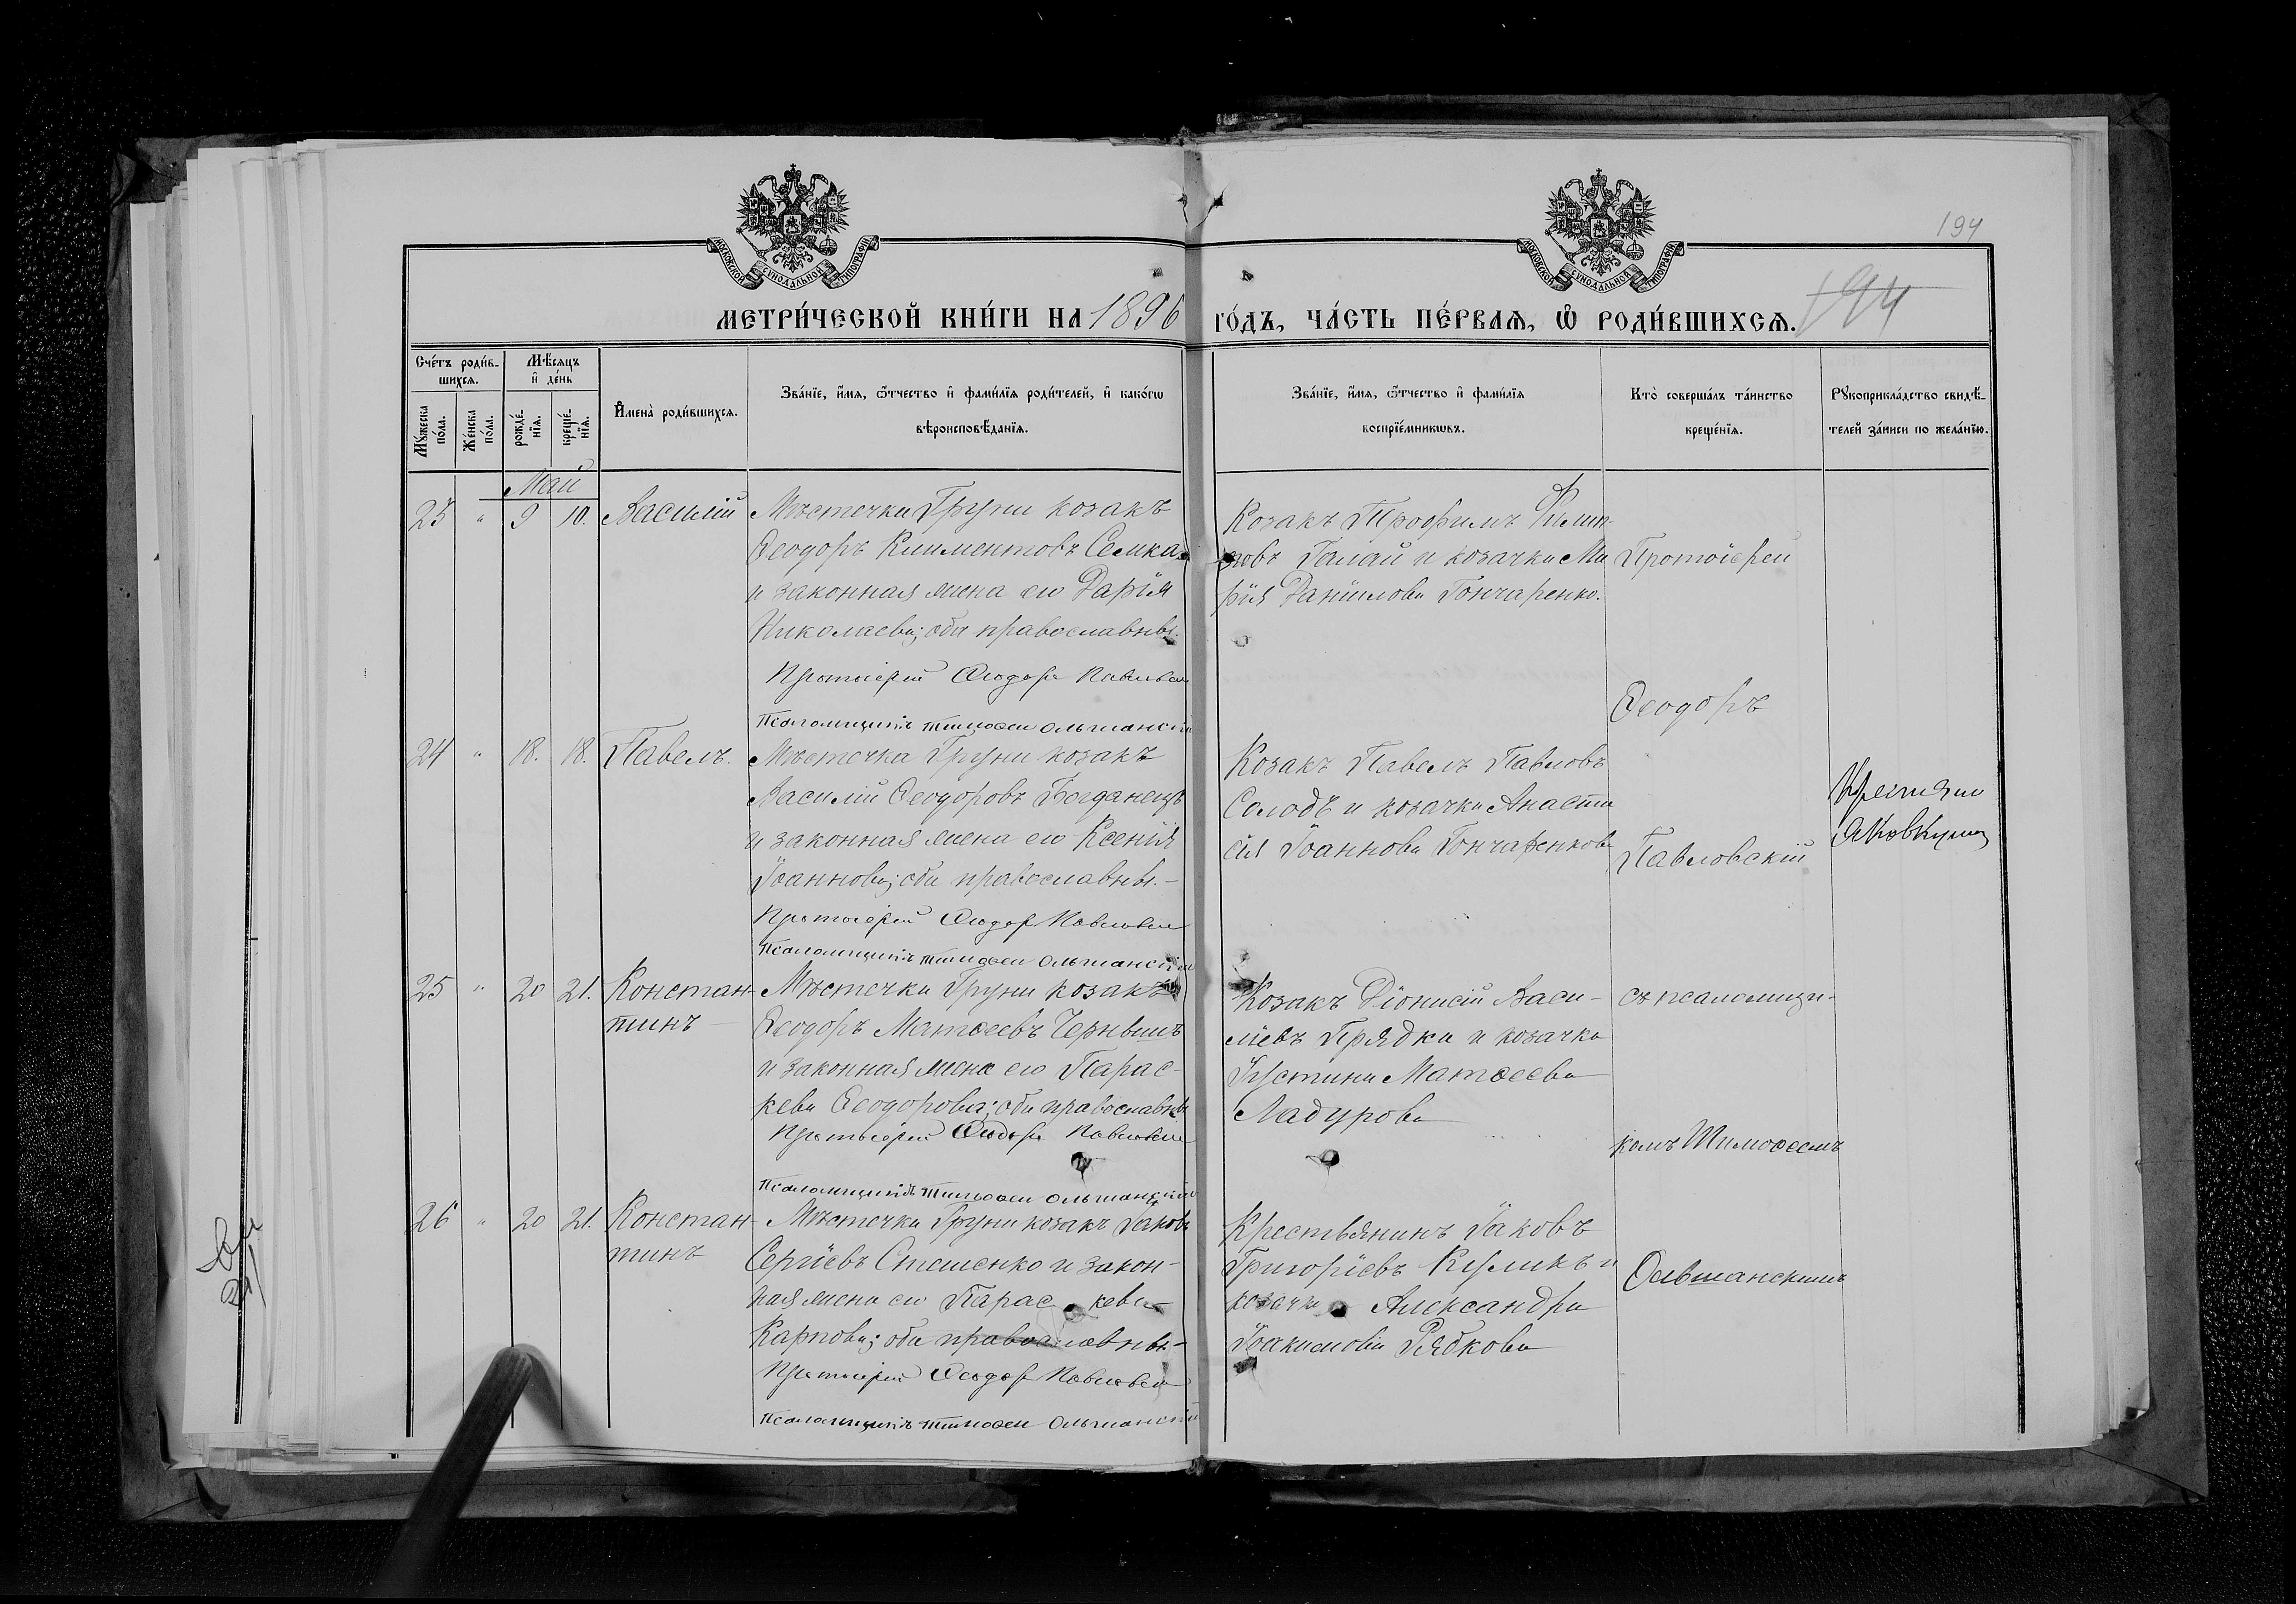 194
194
МОСКОВСКОЙ СѴНОДАЛЬНОЙ ТИПОГРАФІИ
МОСКОВСКОЙ СѴНОДАЛЬНОЙ ТИПОГРАФІИ
МЕТРИ́ЧЕСКОЙ КНИ́ГИ НА 1896 ГО́ДЪ, ЧА́СТЬ ПЕ́РВАѦ, Ѡ РОДИ́ВШИХСѦ.
Сче́тъ роди́в-
шихсѧ.
Мѣ́сѧцъ
и҆ де́нь
Мꙋ́жеска
по́ла.
Же́нска
по́ла.
рожде́-
нїѧ.
креще́-
нїѧ.
И҆мена̀ роди́вшихсѧ.
Зва́нїе, и҆́мѧ, ѻ҆́тчество и҆ фами́лїѧ роди́телей, и҆ како́гѡ
вѣроисповѣ́данїѧ.
Зва́нїе, и҆́мѧ, ѻ҆́тчество и҆ фами́лїѧ
воспрїе́мникѡвъ.
Кто̀ соверша́лъ та́инство
креще́нїѧ.
Рꙋкоприкла́дство свидѣ́-
телей за́писи по жела́нїю.
Май
23 " 9 10. Василій
Мѣстечка Груни козакъ
Ѳеодоръ Климентовъ Семка
и законная жена его Дарія
Николаева; оба православны.
Протоіерей Ѳеодоръ Павловскій
Псаломщикъ Тимоѳей Ольшанскій
Козакъ Трофимъ
Галай и козачка Ма
рія Даніилова Гончаренко.
24 " 18. 18. Павелъ.
Мѣстечка Груни козакъ
Василій Ѳеодоровъ Богданецъ
и законная жена его Ксенія
Іоаннова; оба православны.-
Протоіерей Ѳеодоръ Павловскій
Псаломщикъ Тимоѳей Ольшанскій
Козакъ Павелъ Павловъ
Солодъ и козачка Анаста
сія Іоаннова Гончаренкова
25 " 20 21. Констан-
тинъ
Мѣстечка Груни козакъ
Ѳеодоръ Матѳеевъ Чернышъ
и законная жена его Парас-
кева Ѳеодорова; оба православны
Протоіерей Ѳеодоръ Павловскій
Псаломщикъ Тимоѳей Ольшанскій
Козакъ Діонисій Васи-
ліевъ Прядка и козачка
Іустина Матѳеева
Ладурова
26 " 20 21. Констан-
тинъ
Мѣстечка Груни козакъ Іаковъ
Сергіевъ Сташенко и закон-
ная жена его Парас кева
Карпова; оба православны.-
Протоіерей Ѳеодоръ Павловскій
Псаломщикъ Тимоѳей Ольшанскій
Крестьянинъ Іаковъ
Григоріевъ Куликъ и
козачка Александра
Іоакимова Рябкова
Протоіерей
Ѳеодоръ
Павловскій
съ псаломщи-
комъ Тимоѳеемъ
Ольшанскимъ